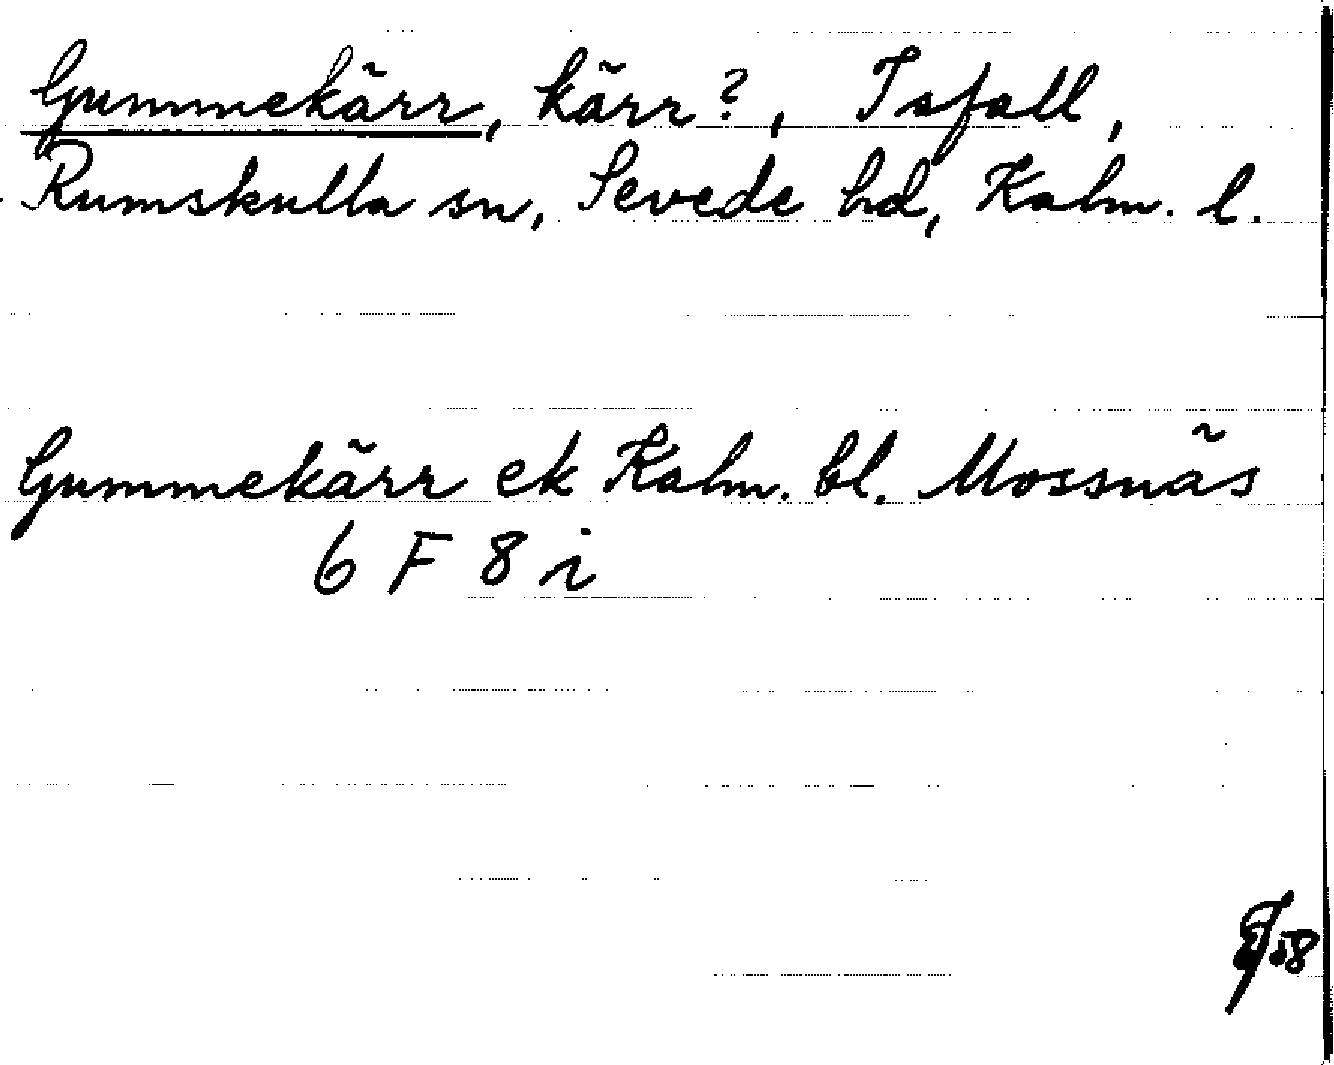 Gummekärr, kärr?, Tafall,
Rumskulla sn, Sevede hd, Kalm. l.
Gummekärr ek Kalm. bl. Mossnäs
6 F 8 i
58